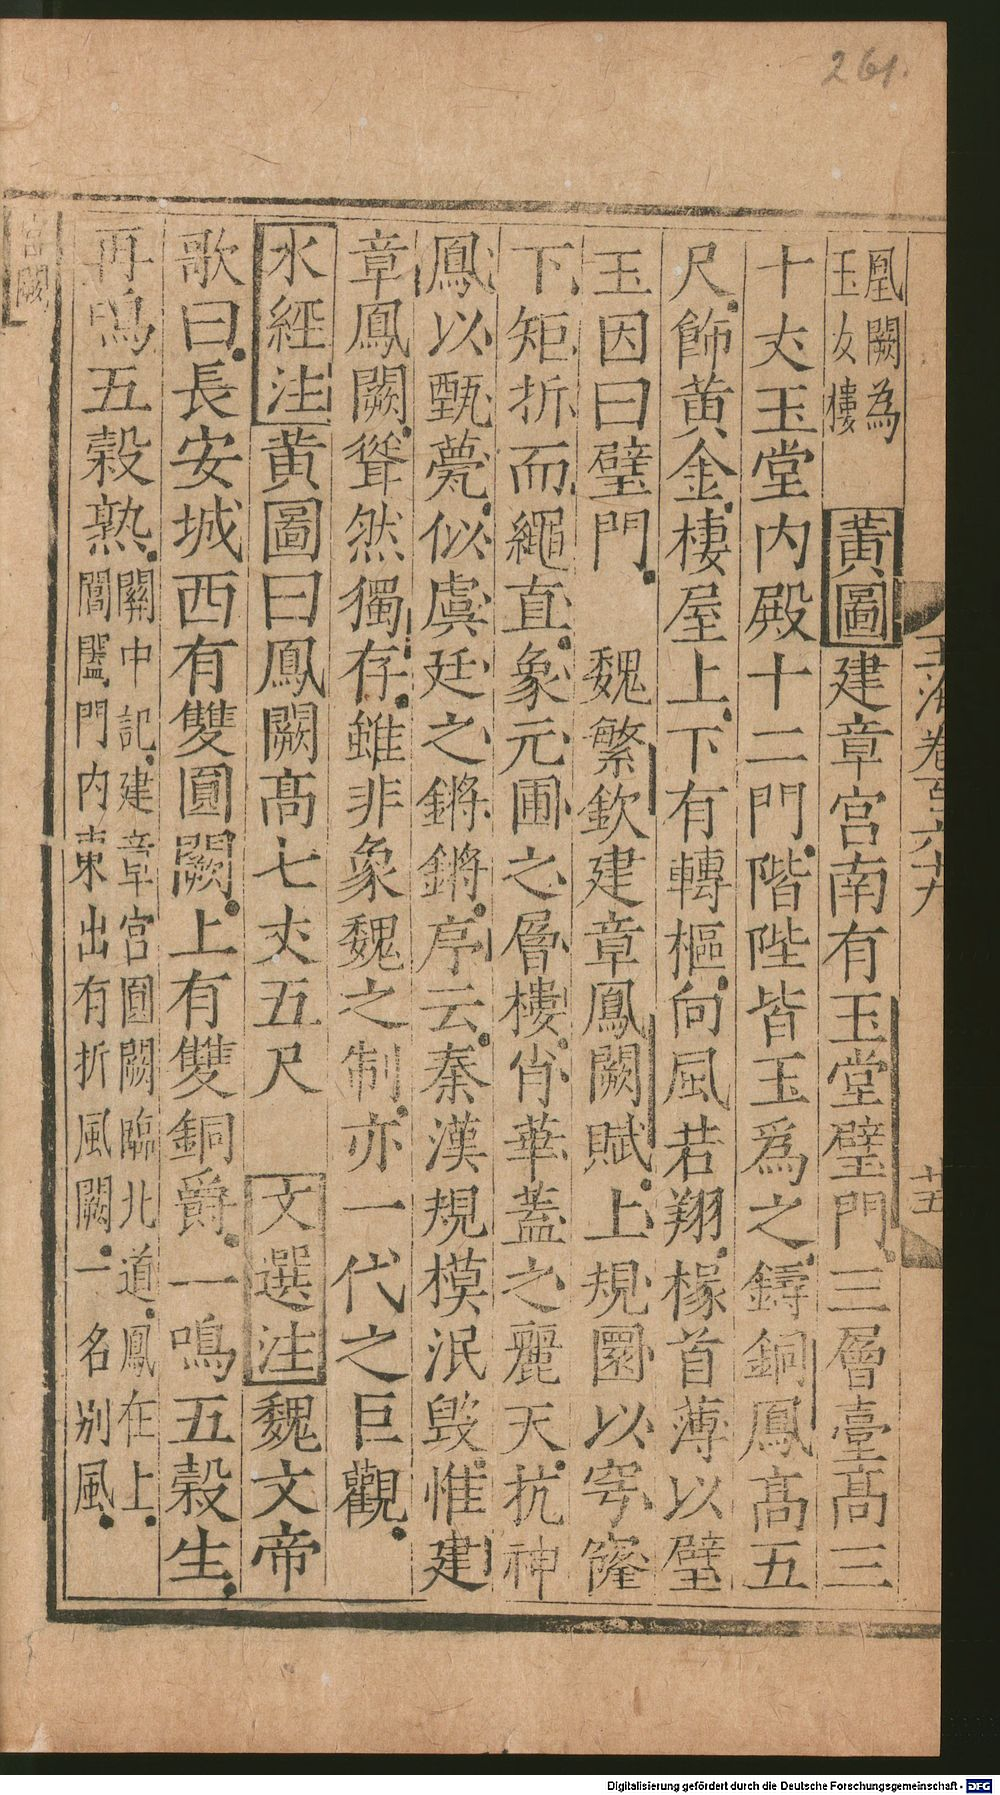 261.
玉海卷百六十九
廿五
凰闕為
玉女樓
黃圖建章宮南有玉堂璧門三層臺髙三
十丈玉堂内殿十二門階陛皆玉爲之鑄銅鳳髙五
尺飾黃金棲屋上下有轉樞向風若翔椽首薄以璧
玉因曰璧門 魏繁欽建章鳳闕賦上規圜以穹窿
下矩折而繩直象元圃之層樓肖華蓋之麗天抗神
鳳以甄甍似虞廷之鏘鏘序云秦漢規模泯毁惟建
章鳳闕聳然獨存雖非象魏之制亦一代之巨觀
水經注黃圖曰鳳闕髙七丈五尺 文選注魏文帝
歌曰長安城西有雙圓闕上有雙銅爵一鳴五榖生
再鳴五榖熟
關中記建章宮圓闕臨北道鳳在上
閶闔門内東出有折風闕一名别風
宫闕
Digitalisierung gefördert durch die Deutsche Forschungsgemeinschaft - DFG